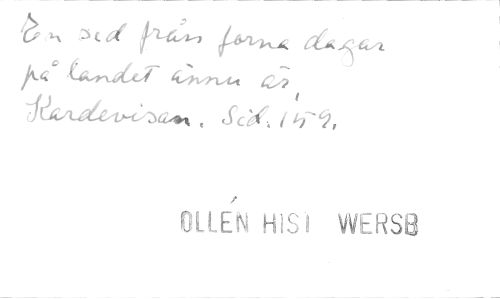 En sed från forna dagar
på landet ännu är,
Kardevisan. Sid. 159.
OLLÉN HIST WERSB